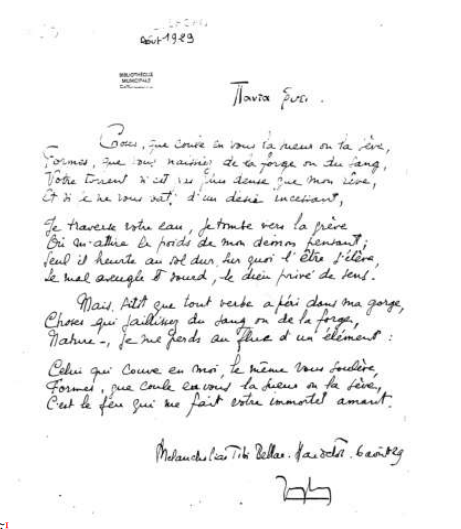 Août 1929
BIBLIOTHÈQUE
MUNICIPALE
Παντα ῥει.
Choses, que coule en vous la sueur ou la sève,
Formes, que vous naissiez de la forge ou du sang,
Votre torrent n'est pas plus dense que mon rêve,
Et si je ne vous bats d'un désir incessant,
Je traverse votre eau, je tombe vers la grève
Où m'attire le poids de mon démon pensant;
Seul il heurte au sol dur sur quoi l'être s'élève,
Le mal aveugle et sourd, le dieu privé de sens.
Mais, sitôt que tout verbe a péri dans ma gorge,
Choses qui jaillissez du sang ou de la forge,
Nature –, je me perds au flux d'un élément :
Celui qui couve en moi, le même vous soulève,
Formes, que coule en vous la sueur ou la sève,
C'est le feu qui me fait votre immortel amant.
Melancholiae Tibi Bellae. Hardelot. 6 août 29